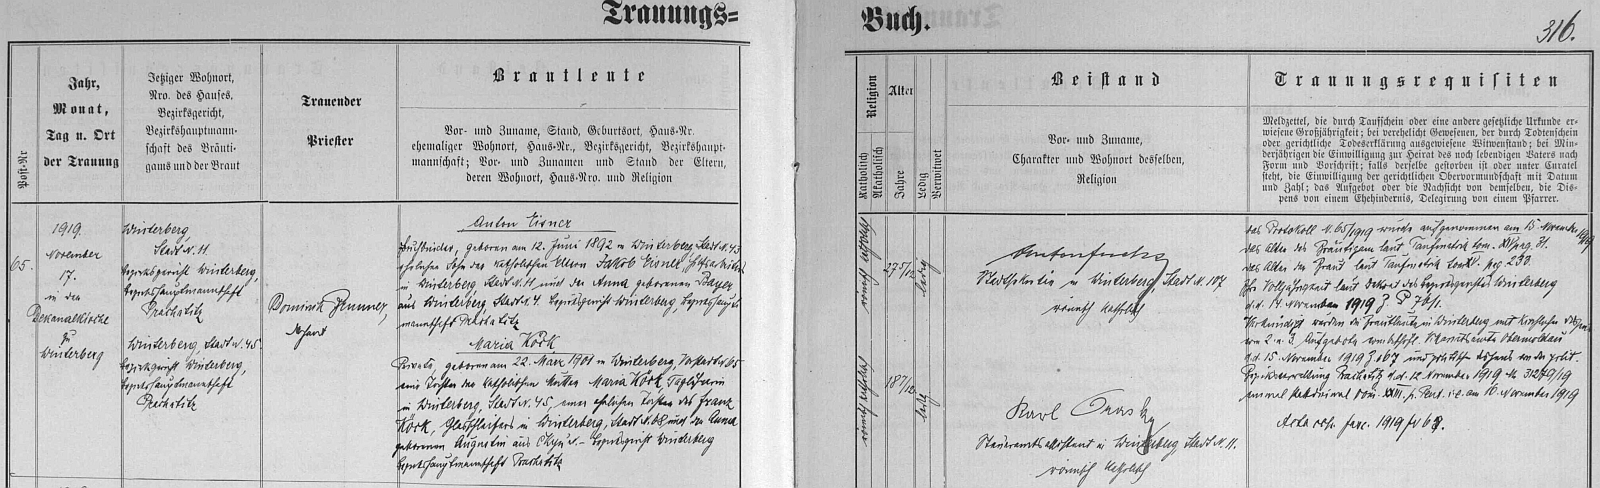 Trauungs=
Buch.
316.
Post-Nr
Jahr,
Monat,
Tag u. Ort
der Trauung
Jetziger Wohnort,
Nro. des Hauses,
Bezirksgericht,
Bezirkshauptmann-
schaft des Bräuti-
gams und der Braut
Trauender
Priester
Brautleute
Vor- und Zuname, Stand, Geburtsort, Haus-Nr.
ehemaliger Wohnort, Haus-Nr., Bezirksgericht, Bezirkshaupt-
mannschaft; Vor- und Zunamen und Stand der Eltern,
deren Wohnort, Haus-Nro. und Religion
Religion
Katholisch
Akatholisch
Alter
Jahre
Ledig
Verwitwet
Beistand
Vor- und Zuname,
Charakter und Wohnort desselben,
Religion
Trauungsrequisiten
Meldzettel, die durch Taufschein oder eine andere gesetzliche Urkunde er-
wiesene Großjährigkeit; bei verehelicht Gewesenen, der durch Todtenschein
oder gerichtliche Todeserklärung ausgewiesene Witwenstand; bei Min-
derjährigen die Einwilligung zur Heirat des noch lebendigen Vaters nach
Form und Vorschrift; falls derselbe gestorben ist oder unter Curatel
steht, die Einwilligung der gerichtlichen Obervormundschaft mit Datum
und Zahl; das Aufgebot oder die Nachsicht von demselben, die Dis-
pens von einem Ehehindernis, Delegirung von einem Pfarrer.
65.
1919.
November
17.
in der
Dekanalkirche
zu
Winterberg
Winterberg,
Stadt N. 11
Bezirksgericht Winterberg,
Bezirkshauptmannschaft
Prachatitz
Winterberg, Stadt N. 45
Bezirksgericht Winterberg,
Bezirkshauptmannschaft
Prachatitz
Dominik
Dechant
Anton Eisner
geboren am 12. Juni 1892 in Winterberg Stadt N. 43
ehelicher Sohn der katholischen Eltern Jakob Eisner,
in Winterberg, Stadt N. 11 und der Anna geborenen Bayer
aus Winterberg, Stadt N. 4. Bezirksgericht Winterberg, Bezirkshaupt
mannschaft Prachatitz
Maria Körk
Private, geboren am 22. März 1901 in Winterberg, Vorstadt N. 65
eine Tochter der katholischen Mutter Maria Körk Taglöhnerin
in Winterberg, Stadt N. 45, einer ehelichen Tochter des Franz
Körk, Glasschleifers in Winterberg, Stadt N. 68 und der Anna
geborenen Augustin aus Bezirksgericht Winterberg
Bezirkshauptmannschaft Prachatitz
römisch katholisch
27 5/12
ledig
römisch katholisch
18 7/12
ledig
Anton Fuchs
Stadtsekretär in Winterberg, Stadt N. 107
römisch katholisch
Karl
Steueramtsassistent in Winterberg, Stadt N. 11.
römisch katholisch
das Protokoll N. 65/1919 wurde aufgenommen am 15. November 1919
das Alter des Bräutigams laut Taufmatrik tom. XIV pag. 31.
das Alter der Braut laut Taufmatrik tom XV. pag 233.
Ihre Volljährigkeit laut Dekret des Bezirksgerichtes Winterberg
d.d. 14. November 1919 Z P 70/1.
Verkündigt wurden die Brautleute in Winterberg mit Nachsicht des
vom 2. u. 3. Aufgebote Obermoldau
d.d. 15. November 1919 Z 67 und
Bezirksverwaltung Prachatitz d.d. 12. November 1919 N. 31279/19
einmal XXIII. p. Pent. i.e. am 16. November 1919
1919